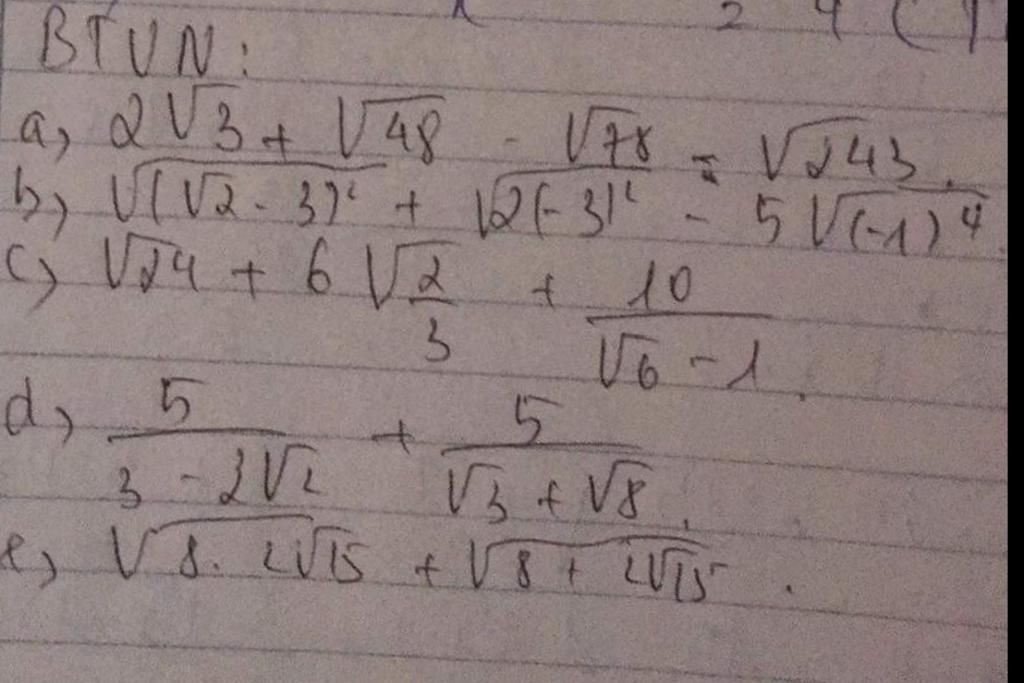 BTVN:
a, 2√3 + √48 - √78 = √243.
b, √(√2 - 3)² + √2(-3)² - 5√(-1)⁴.
c, √24 + 6√2/3 + 10/√6 - 1.
d, 5/3 - 2√2 + 5/√3 + √8.
e, √8. 2√15 + √8 + 2√15.